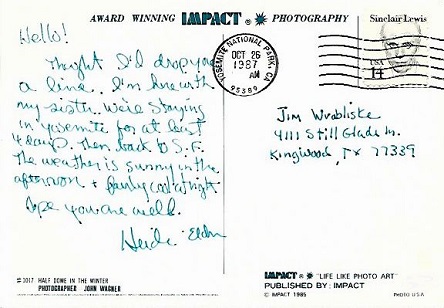 AWARD WINNING IMPACT® PHOTOGRAPHY
Sinclair Lewis
USA
14
YOSEMITE NATIONAL PARK, CA
OCT 26
1987
AM
95389
Hello!
Thought I'd drop you
a line. I'm here with
my sister. We're staying
in Yosemite for at least
4 days, then back to S.F.
The weather is sunny in the
afternoon + fairly cool at night
Hope you are well.
Heidi
Jim Wrobliske
4111 Still Glade Ln.
Kingwood, TX 77339
#1017 HALF DOME IN THE WINTER
PHOTOGRAPHER JOHN WAGNER
IMPACT® "LIFE LIKE PHOTO ART"
PUBLISHED BY: IMPACT
© IMPACT 1985
PHOTO U.S.A